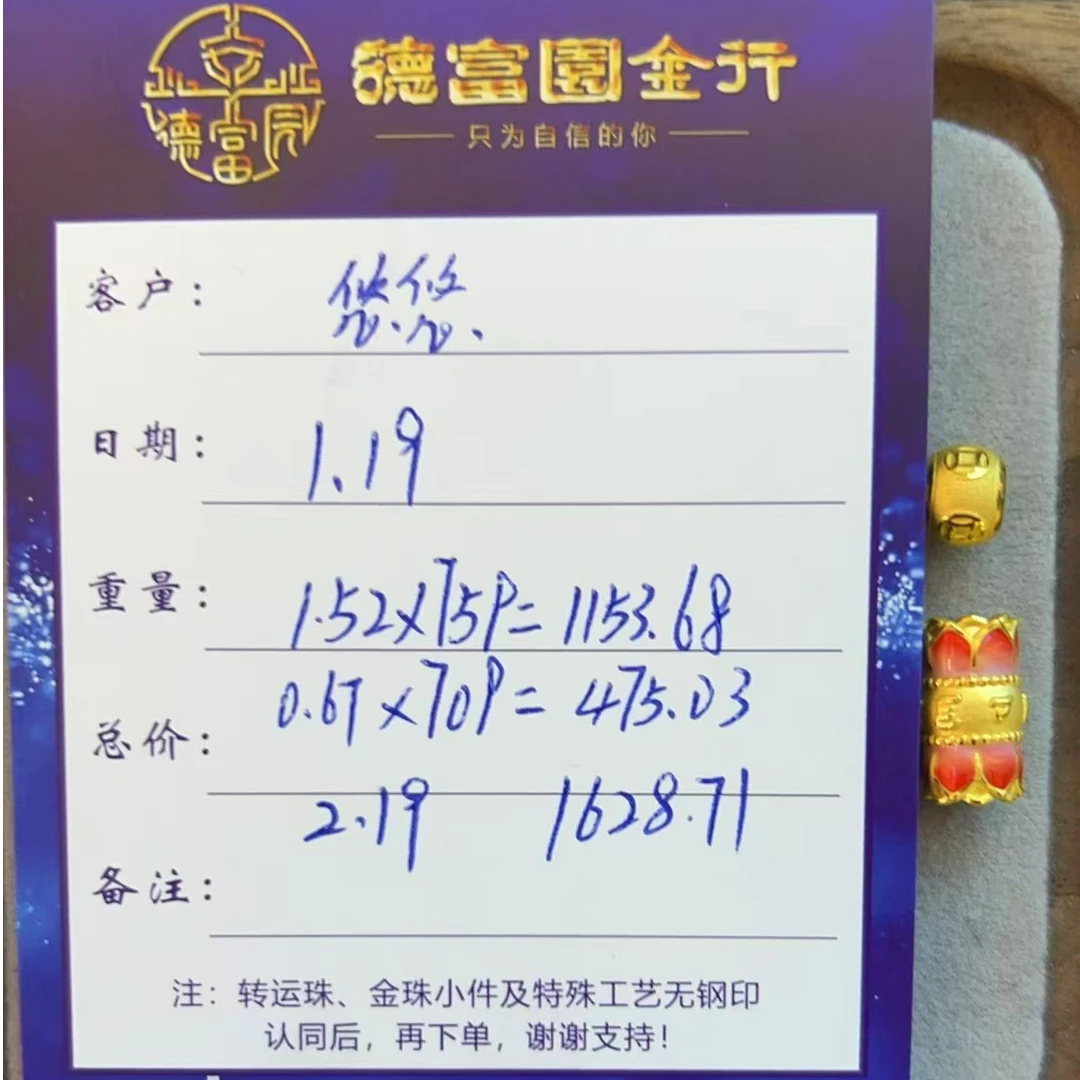 德富園金行
只为自信的你
德富园
客户： 悠悠.
日期： 1.19
重量： 1.52×759=1153.68
0.67×709=475.03
总价：
2.19 1628.71
备注：
注：转运珠、金珠小件及特殊工艺无钢印
认同后，再下单，谢谢支持！